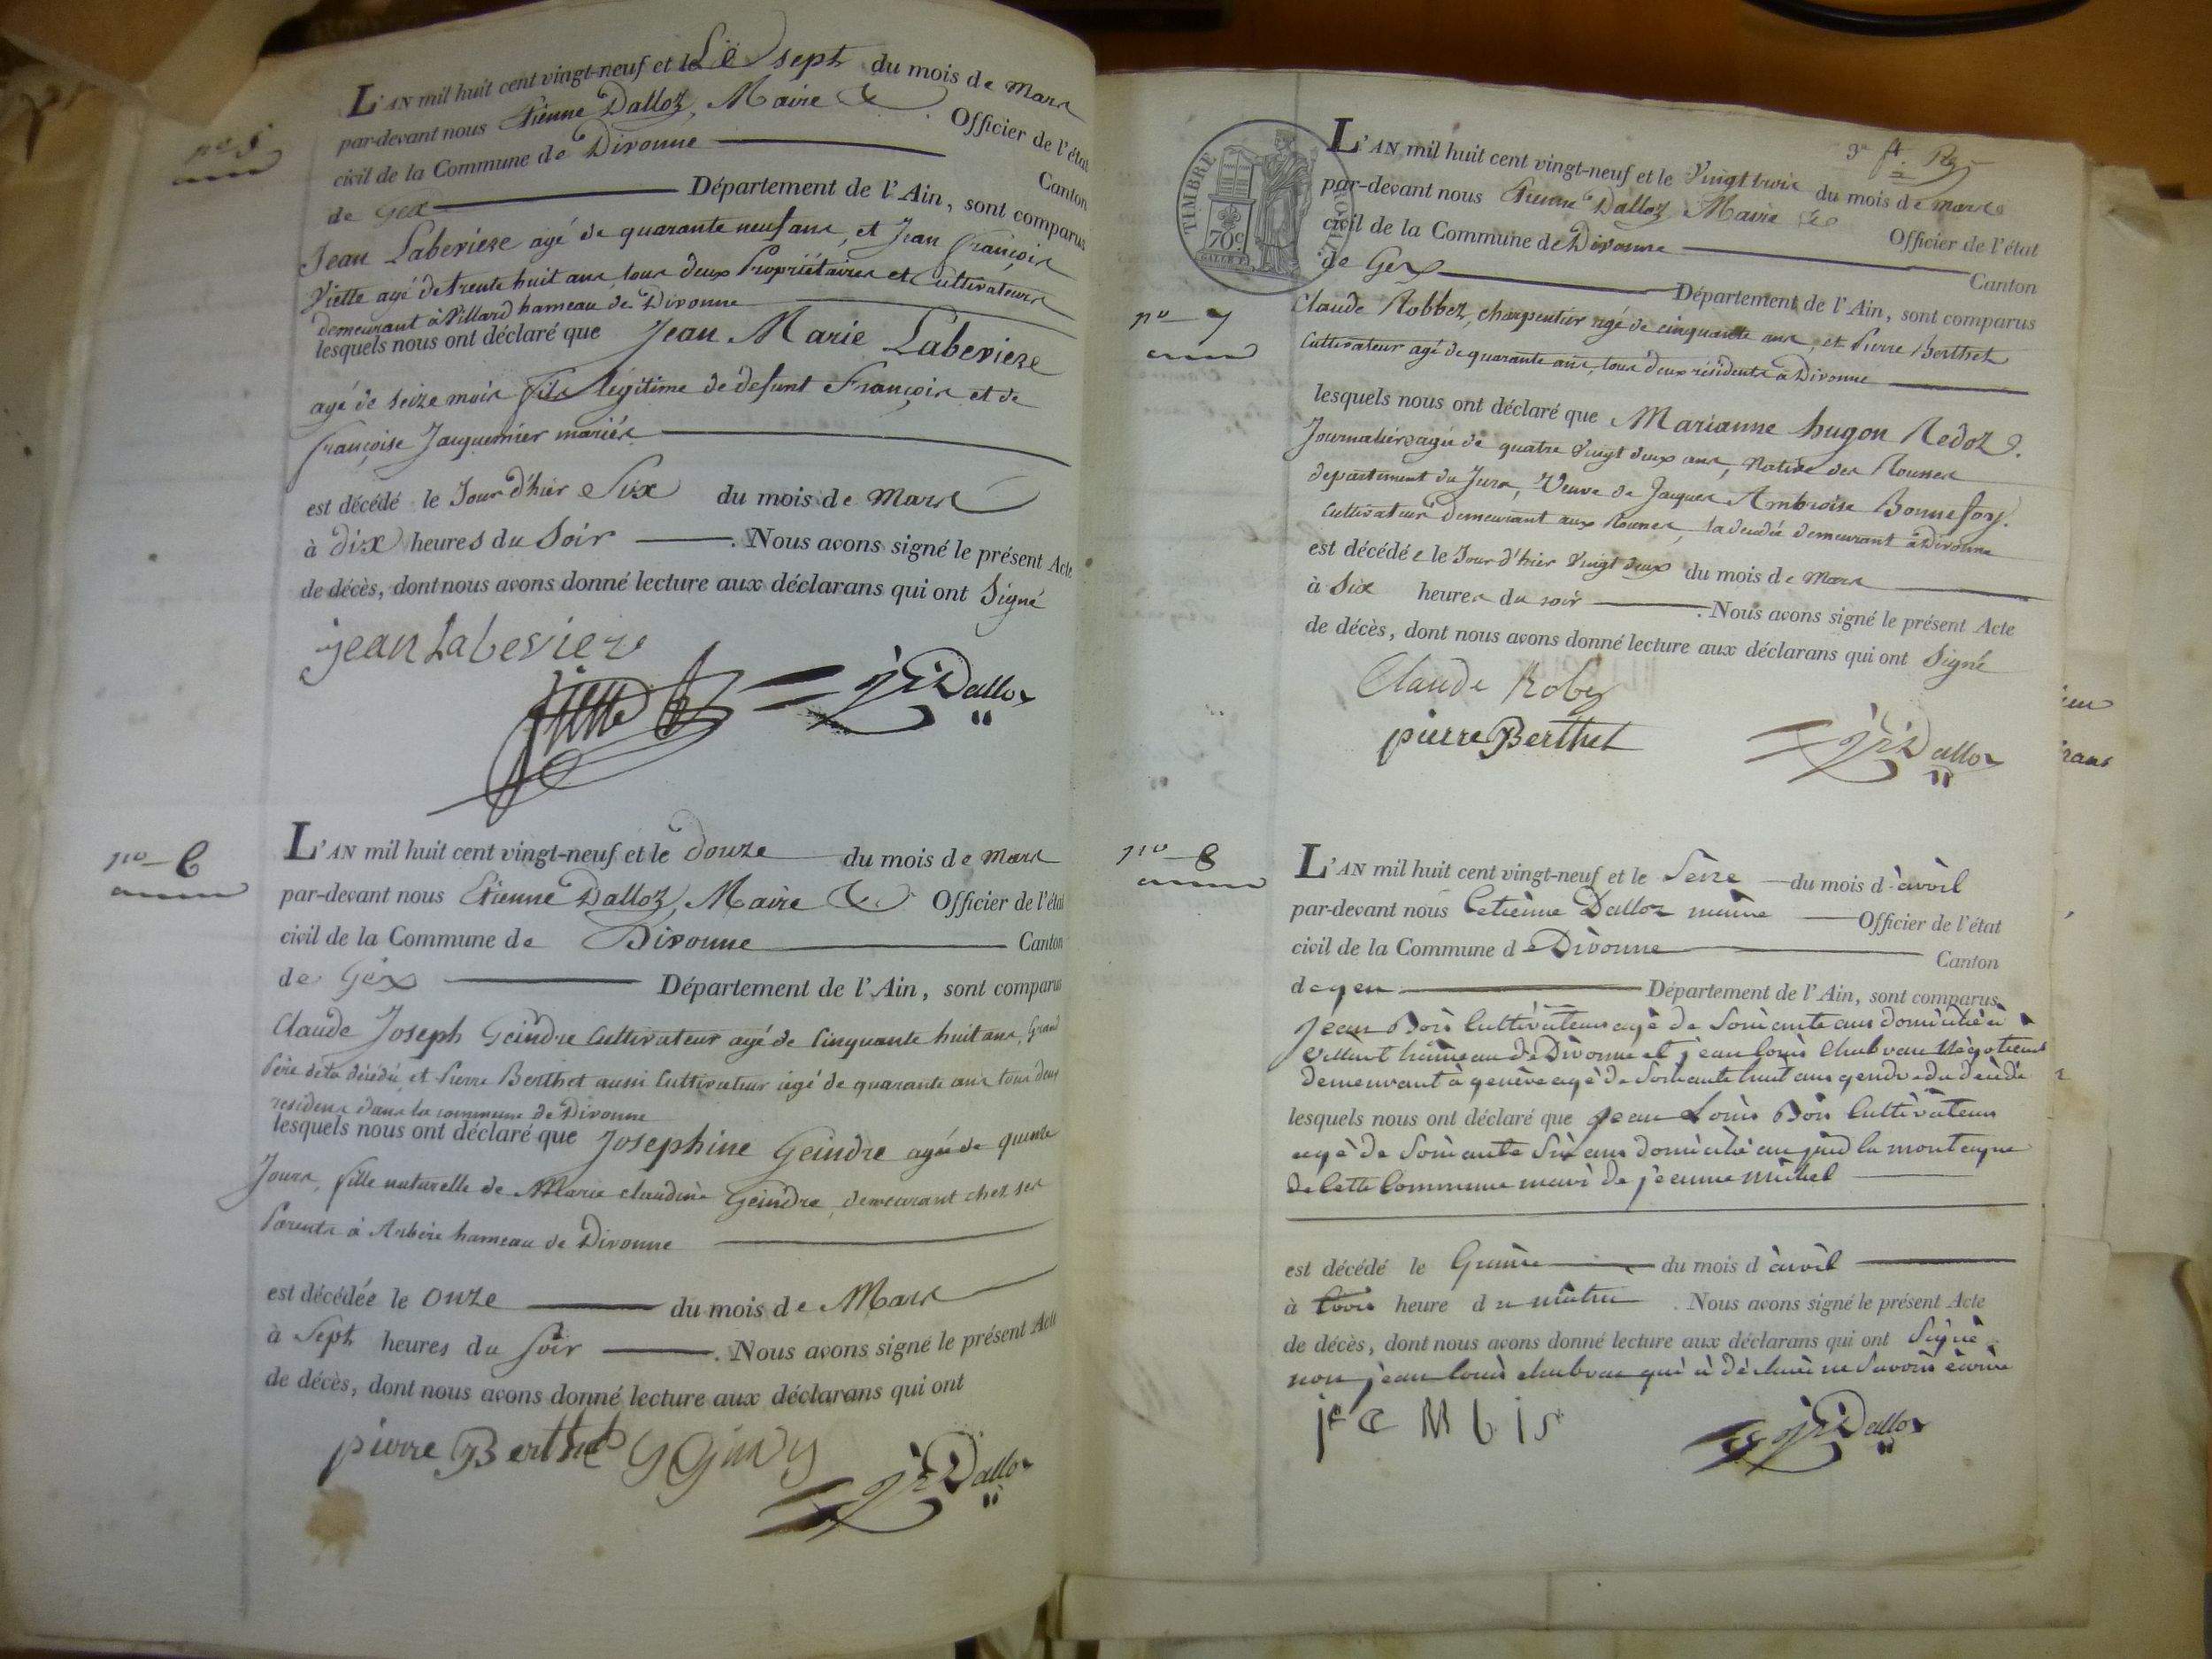 nº 5
L'AN mil huit cent vingt-neuf et le Le sept du mois de Mars
par-devant nous Etienne Dalloz, Maire & Officier de l'état
civil de la Commune de Divonne Canton
de Gex Département de l'Ain, sont comparus
Jean Laberiere agé de quarante neuf ans, et Jean François
Viette agé de trente huit ans, tous deux Propriétaires et Cultivateurs
demeurant à Villard hameau de Divonne
lesquels nous ont déclaré que Jean Marie Laberiere
agé de seize mois fils légitime de defunt François et de
Françoise Jacquemier mariés
est décédé le Jour d'hier Six du mois de Mars
à dix heures du Soir . Nous avons signé le présent Acte
de décès, dont nous avons donné lecture aux déclarans qui ont Signé
jean Laberiere
Dalloz
nº 6
L'AN mil huit cent vingt-neuf et le douze du mois de Mars
par-devant nous Etienne Dalloz, Maire & Officier de l'état
civil de la Commune de Divonne Canton
de Gex Département de l'Ain, sont comparus
Claude Joseph Geindre Cultivateur agé de Cinquante huit ans, Grand
Père de la décédée, et Pierre Berthet aussi Cultivateur agé de quarante ans tous deux
residens dans la commune de Divonne
lesquels nous ont déclaré que Josephine Geindre agée de quinze
Jours, fille naturelle de Marie claudine Geindre, demeurant chez ses
Parents à Arbere hameau de Divonne
est décédée le Onze du mois de Mars
à Sept heures du Soir . Nous avons signé le présent Acte
de décès, dont nous avons donné lecture aux déclarans qui ont
pierre Berthet
Dalloz
TIMBRE ROYAL
70c
3e
L'AN mil huit cent vingt-neuf et le Vingt trois du mois de Mars
par-devant nous Etienne Dalloz Maire & Officier de l'état
civil de la Commune de Divonne Canton
de Gex Département de l'Ain, sont comparus
nº 7
Claude Robbez, charpentier agé de cinquante ans, et Pierre Berthet
Cultivateur agé de quarante ans, tous deux résidents à Divonne
lesquels nous ont déclaré que Marianne hugon Redoz
Journalière agée de quatre Vingt deux ans, Native des Rousses
departement du Jura, Veuve de Jacques Ambroise Bonnefoy.
Cultivateur demeurant aux Rousses, la décédée demeurant à Divonne
est décédée le Jour d'hier Vingt deux du mois de Mars
à Six heures du soir . Nous avons signé le présent Acte
de décès, dont nous avons donné lecture aux déclarans qui ont Signé
Claude Robez
pierre Berthet
Dalloz
nº 8
L'AN mil huit cent vingt-neuf et le Seize du mois d'avril
par-devant nous Etienne Dalloz maire Officier de l'état
civil de la Commune de Divonne Canton
de gex Département de l'Ain, sont comparus
jean Bois Cultivateur agé de Soixante ans domicilié à
Villard hameau de Divonne et jean louis Chubvau Negotient
demeurant à genève agé de Soixante huit ans gendre du décédé
lesquels nous ont déclaré que jean Louis Bois Cultivateur
agé de Soixante Six ans domicilié au pied la montagne
de Cette Commune mari de jeanne Michel
est décédé le Quinze du mois d'avril
à trois heure du matin . Nous avons signé le présent Acte
de décès, dont nous avons donné lecture aux déclarans qui ont Signé
non jean louis chubvau qui à déclaré ne Savoir écrire
Dalloz